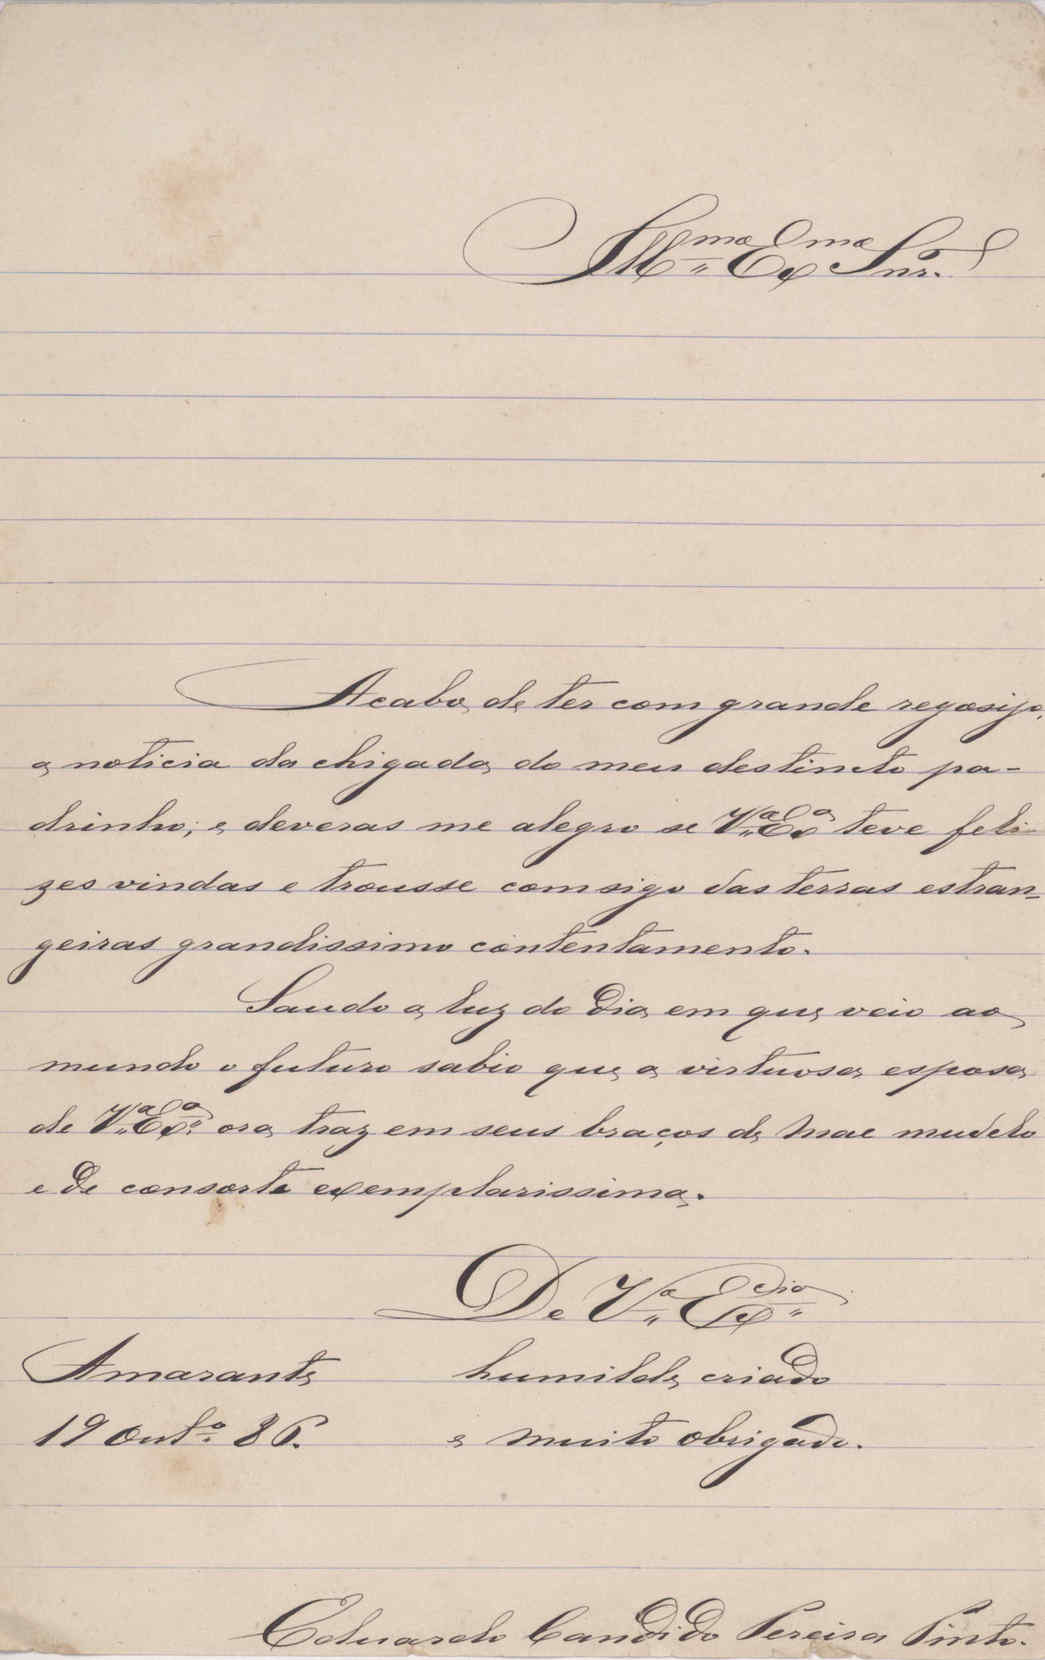 Illmo Exmo Snr.
Acabo de ter com grande regosijo,
a noticia da chigada do meu destincto pa-
drinho; e deveras me alegro se Va Exa teve feli-
zes vindas e trousse comsigo das terras estran-
geiras grandissimo contentamento.
Saudo a luz do dia em que veio ao
mundo o futuro sabio que a virtuosa esposa
de Va Exa ora traz em seus braços de mae mudelo
e de consorte exemplarissima.
De Va Excia
Amarante humilde criado
19 Outo. 86. e muito obrigado.
Eduardo Candido Pereira Pinto.